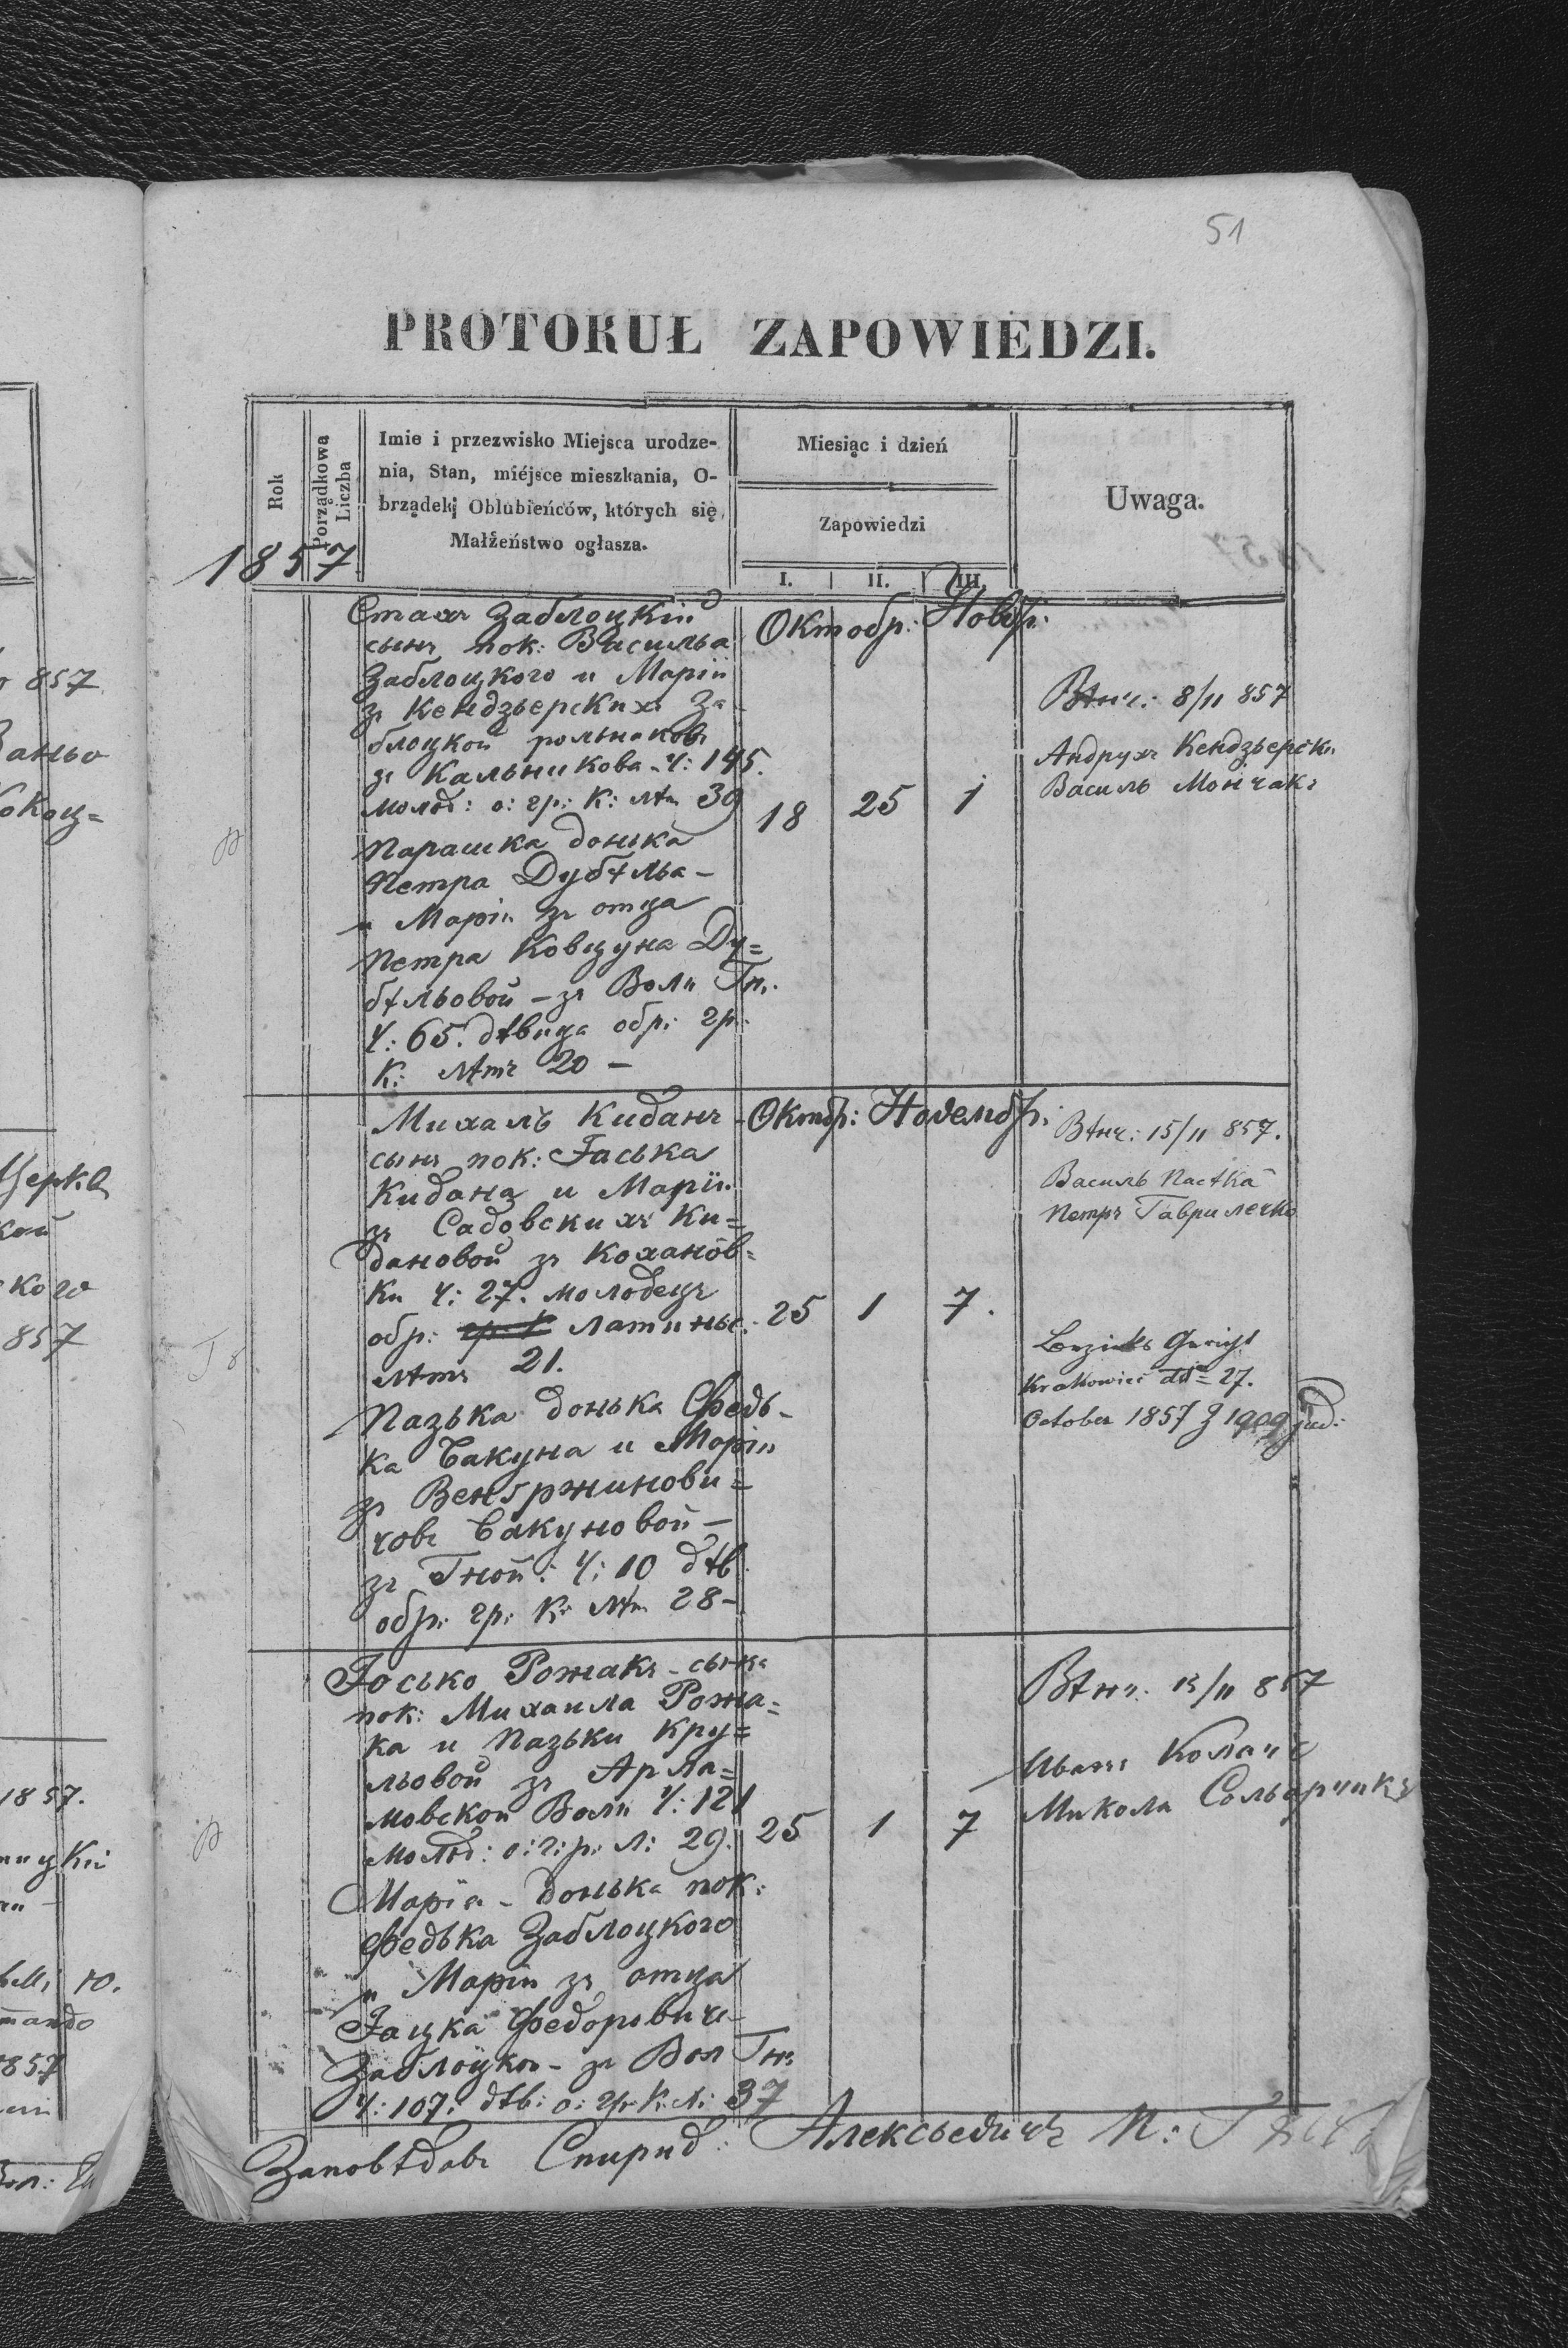 51
PROTOKUŁ ZAPOWIEDZI.
Rok
Porządkowa Liczba
Imie i przezwisko Miejsca urodze-
nia, Stan, miéjsce mieszkania, O-
brządek Oblubieńców, których się
Małżeństwo ogłasza.
Miesiąc i dzień
Zapowiedzi
I. II. III.
Uwaga.
1857
Стахъ Заблоцкій
сынъ пок: Василья
Заблоцкого и Маріи
зъ Кендзьерскихъ За
блоцкои рольниковъ
зъ Кальникова Ч: 145.
молод: о: гр: К: лѣт 39
Парашка донька
Петра Дубѣльа –
и Маріи зъ отца
Петра Ковцуна Ду=
бѣльовои – зъ Воли Гн:
Ч: 65. дѣвица обр: гр:
К: лѣтъ 20 –
Октобр: Новбр:
18 25 1
Вѣнч: 8/11 857
Андрухъ Кендзьерскі
Василь Мончакъ
Михалъ Киданъ
сынъ пок: Гаська
Кидана и Маріи
зъ Садовскихъ Ки=
дановои зъ Коханов=
ки Ч: 27. молодецъ
обр: гр: К латиньс:
лѣтъ 21.
Пазька донька Федь-
ка Бакуна и Маріи
зъ Венгржинови=
човъ Бакуновои –
зъ Гнои: Ч: 10 дѣв
обр: гр: К: лѣт 28 –
Октбр: Новембр:
25 1 7.
Вѣнч: 15/11 857.
Василь Паѣка
Петръ Гаврилечко
Krakowiec dto 27.
October 1857 Z 1909 jud:
Іосько Рожакъ – сынъ
пок: Михаила Рожа=
ка и Пазьки Кру=
льовои зъ Арла=
мовскои Воли Ч: 121
молод: о: г: р: л: 29.
Маріа – донька пок:
Федька Заблоцкого
и Маріи зъ отца
Яцка Федоровича
Заблоцкои – зъ Вол Гн:
Ч: 107. дѣв: о: гр: К: л: 37
25 1 7
Вѣнч: 15/11 857
Иванъ
Микола
Заповѣдавъ Спирид: Алексьевичъ П: